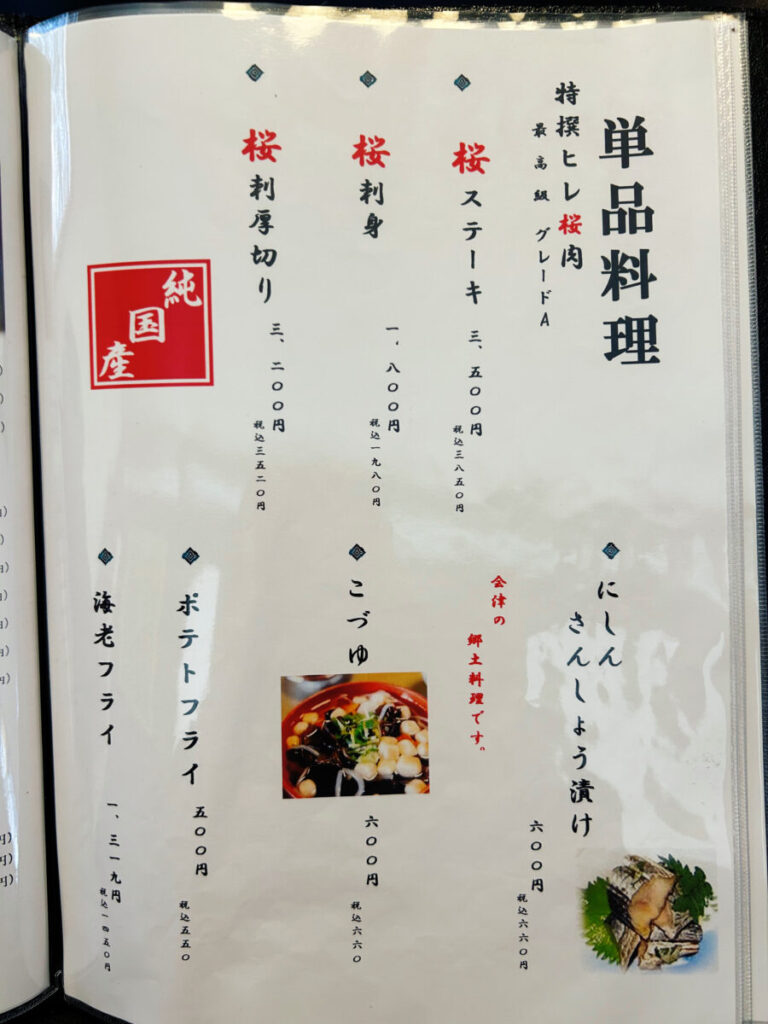 単品料理
特撰ヒレ桜肉
最高級 グレードA
桜ステーキ
三、五〇〇円
税込三八五〇円
桜刺身
一、八〇〇円
税込一九八〇円
桜刺厚切り
三、二〇〇円
税込三五二〇円
純国産
にしん
さんしょう漬け
六〇〇円
税込六六〇円
会津の
郷土料理です。
こづゆ
六〇〇円
税込六六〇
ポテトフライ
五〇〇円
税込五五〇
海老フライ
一、三一九円
税込一四五〇円